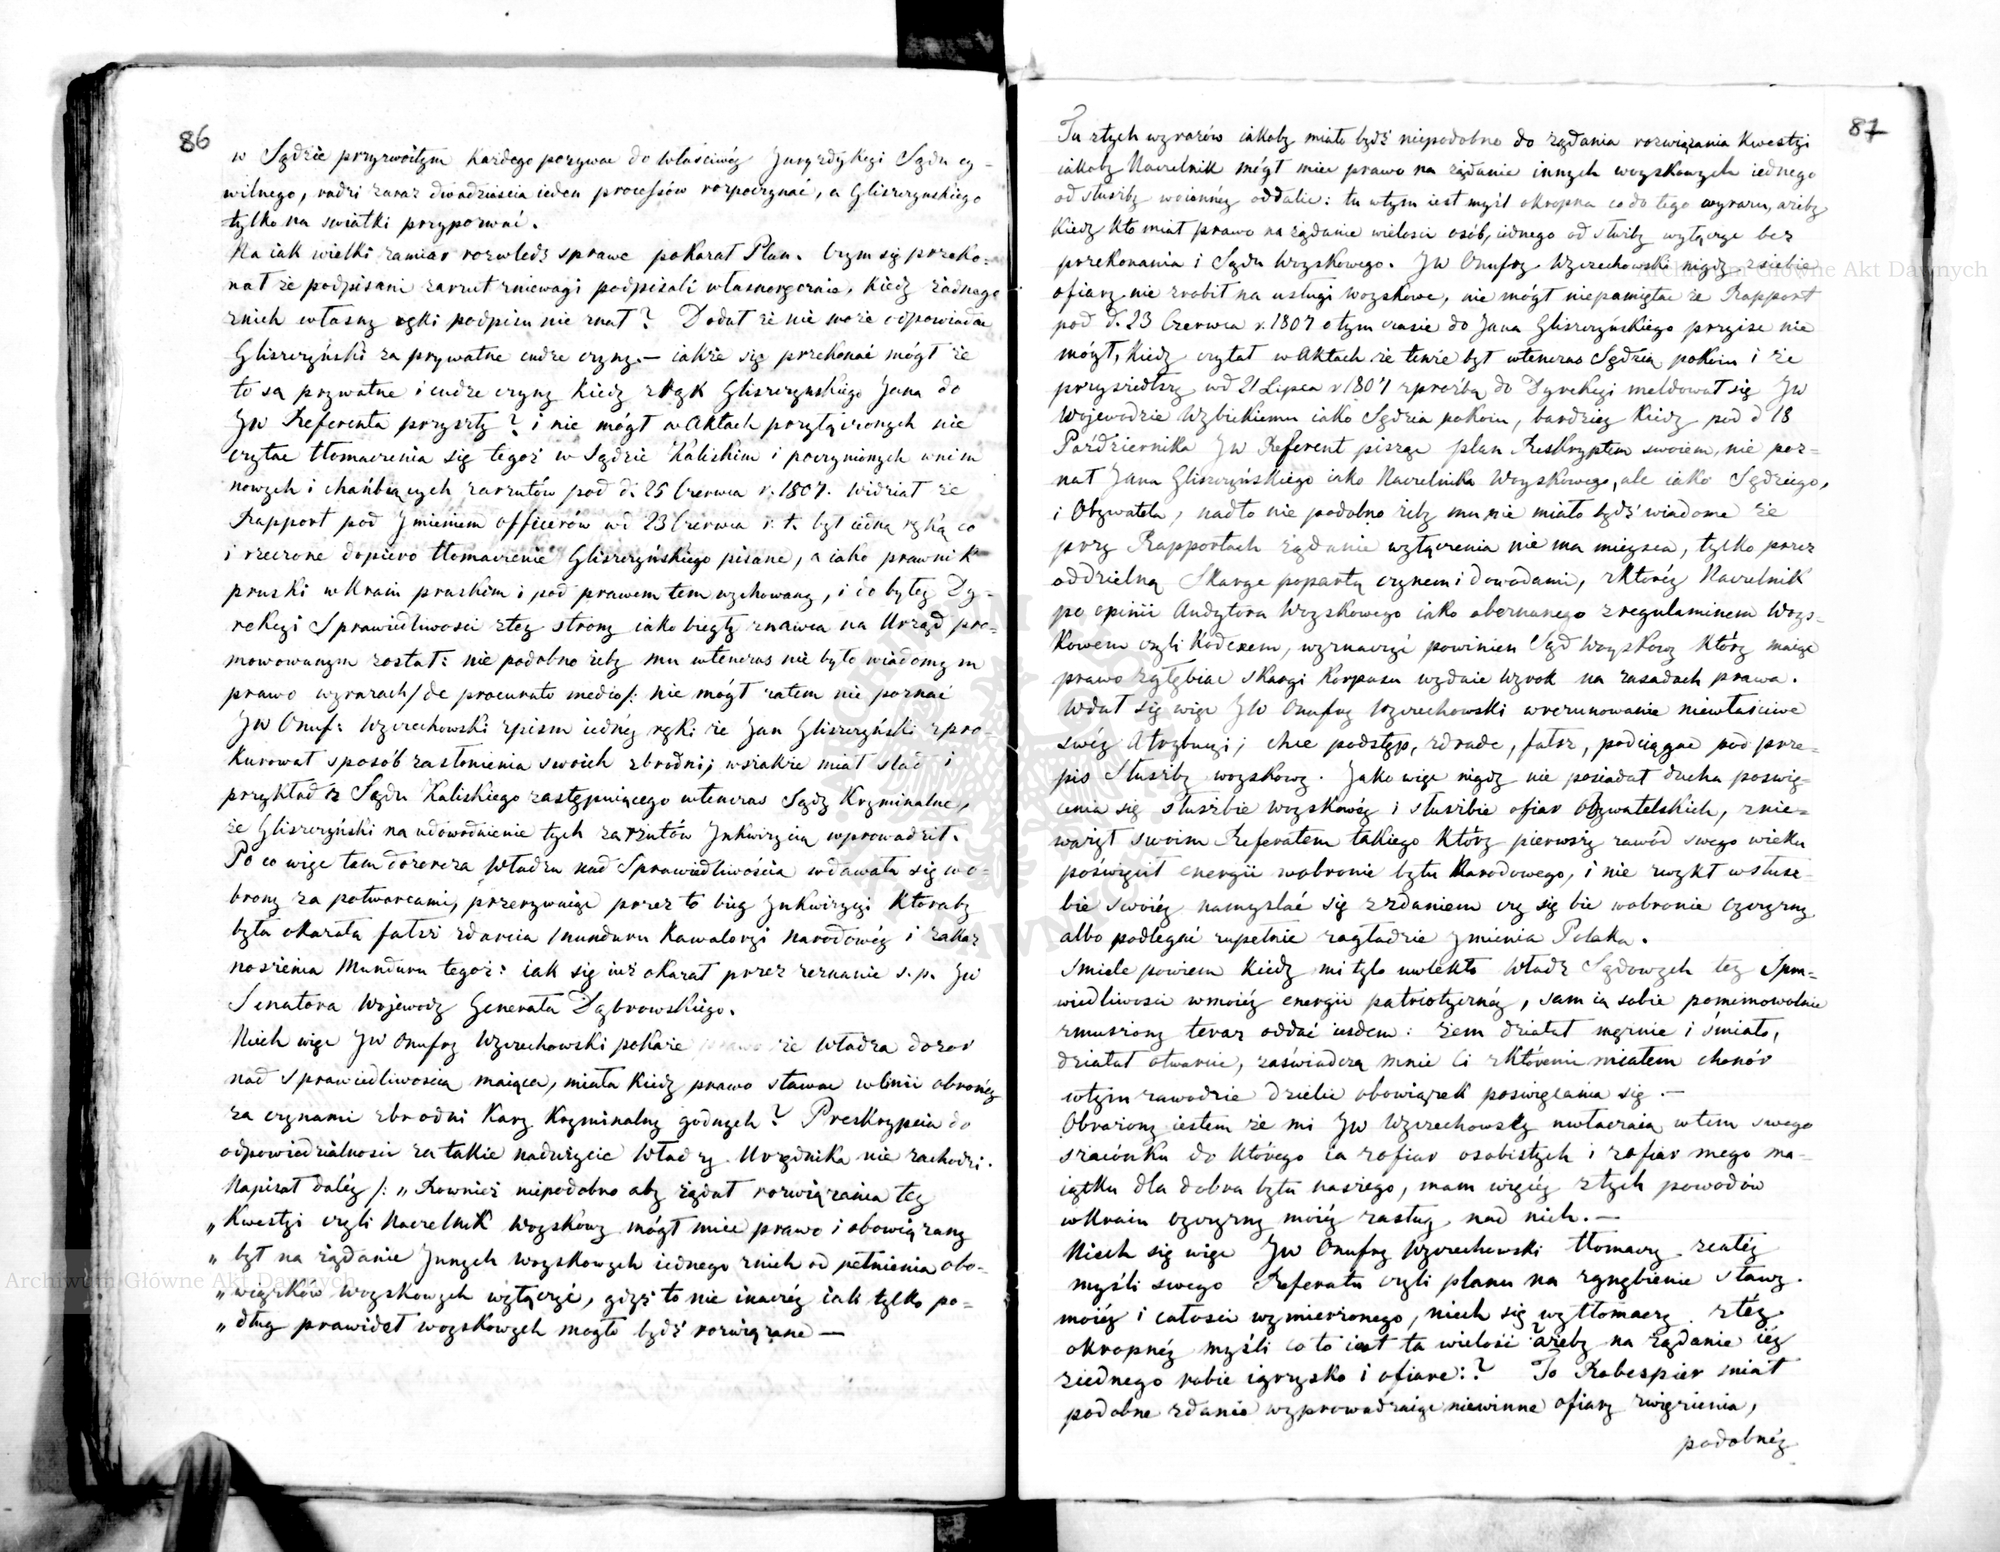 86
w Sądzie przyzwoitym każdego pozywać do właściwéy Juryzdykcyi Sądu cy-
wilnego, radzi zaraz dwadzieścia ieden processów rozpoczynać, a Gliszczynskiego
tylko na swiatki przypozwać.
Na iak wielki zamiar rozwiedź sprawe pokazał Plan. Czym się przeko-
nał że podpisani zarzut zniewagi podpisali własnoręcznie, kiedy żadnego
znich własny ręki podpisu nie znał? Dodał że nie może odpowiadać
Gliszczyński za prywatne cudze czyny. – iakże się przekonać mógł że
to są prywatne i cudze czyny kiedy z rąk Gliszczynskiego Jana do
JW Referenta przyszły? i nie mógł w Aktach przyłączonych nie
czytać tłomaczenia się tegoż w Sądzie Kaliskim i poczynionych w nim
nowych i chańbiących zarzutów pod d. 25 Czerwca r. 1807. widział że
Rapport pod Jmieniem officerów wd 23 Czerwca r. t. był iedną ręką co
i rzeczone dopiero tłomaczenie Gliszczyńskiego pisane, a iako prawnik
pruski w kraiu pruskim i pod prawem tem wychowany, i do byłey Dy-
rekcyi Sprawiedliwosci ztey strony iako biegły znawca na Urząd pro-
mowowanym został: nie podobno żeby mu wtenczas nie było wiadomym
prawo wyrazach /de procurato medio/: nie mógł zatem nie poznać
JW Onuf: Wyczechowski zpism iednéy ręki że Jan Gliszczyński zpro-
kurował sposób zasłonienia swoich zbrodni; wszakże miał slad i
przykład z Sądu Kaliskiego zastępuiącego wtenczas Sądy Kryminalne,
że Gliszczyński na udowodnienie tych zarzutów Jnkwizycią wprowadził.
Po co więc tam dozorcza Władza nad Sprawiedliwością wdawała się wo-
brony za potwarcami, przerywaiąc przez to bieg Jnkwizycyi któraby
była okazała fałsz zdarcia munduru Kawaleryi narodowéy i zakaz
noszenia Munduru tegoż: iak się iuż okazał przez zeznanie s.p. JW
Senatora Wojewody Generała Dąbrowskiego.
Niech więc JW Onufry Wyczechowski pokaże że Władza dozor
nad sprawiedliwoscią maiąca, miała kiedy prawo stawać w linii obronéy
za czynami zbrodni kary kryminalny godnych? Preskrypcia do
odpowiedzialnosci za takie nadużycie Władzy Urzędnika nie zachodzi.
Napisał daléy /: „Rownież niepodobno aby żądał rozwiązania tey
„Kwestyi czyli Naczelnik Woyskowy mógł miec prawo i obowiązany
„był na żądanie Jnnych woyskowych iednego znich od pełnienia obo-
„wiązków woyskowych wyłączyć, gdyż to nie inaczéy iak tylko po-
„dług prawideł woyskowych mogło bydź rozwiązane —
87
Tu ztych wyrazów iakoby miało bydź niepodobno do żądania rozwiązania kwestyi
iakoby Naczelnik mógł miec prawo na żądanie innych woyskowych iednego
od służby woiennéy oddalic: tu wtym iest myśl okropna co do tego wyrazu, ażeby
kiedy kto miał prawo na żądanie wielosci osób, iednego od służby wyłącza bez
przekonania i Sądu Woyskowego. JW Onufry Wyczechowski nigdy zsiebie
ofiary nie zrobił na usługi woyskowe, nie mógł niepamiętac że Rapport
pod d. 23 Czerwca r. 1807 otym czasie do Jana Gliszczyńskiego przyiść nie
mógł, kiedy czytał w Aktach że tenże był wtenczas Sędzią pokoiu i że
przyszedłszy wd 21 Lipca r 1807 zprożbą do Dyrekcyi meldował się JW
Wojewodzie Wybickiemu iako Sędzia pokoiu, bardziey kiedy pod d 18
Października JW Referent piszący plan Reskryptem swoiem, nie poz-
nał Jana Gliszczyńskiego iako Naczelnika Woyskowego, ale iako Sędziego,
i Obywatela, nadto nie podobno żeby mu nie miało bydź wiadome że
przy Rapportach żądanie wyłączenia nie ma mieysca, tylko przez
oddzielną Skargę popartą czynem i dowodami, zktoréy Naczelnik
po opinii Audytora Woyskowego iako obeznanego z regulaminem Woys-
kowem czyli Kodexem, wyznaczyć powinien Sąd Woyskowy który maiąc
prawo zgłębiac skargi Korpusu wydaie Wyrok na zasadach prawa.
Wdał się więc JW Onufry Wyczechowski wrezunowanie niewłaściwe
swéy Atrybucyi; chce podstęp, zdradę, fałsz, podciągac pod prze-
pis Służby woyskowy. Jako więc nigdy nie posiadał ducha poswię-
cenia się służbie woyskowéy i służbie ofiar Obywatelskich, znie-
ważył swoim Referatem takiego który pierwszy zawód swego wieku
poświęcił energii wobronie bytu Narodowego, i nie zwykł wsłuż-
bie swoiéy namyslać się z zdaniem czy się bic wobronie oyczyzny
albo podlegać zupełnie zagładzie Jmienia Polaka.
Smiele powiem kiedy mi tylo uwlekło Władz Sądowych tey Spra-
wiedliwosci wmoiéy energii patriotyczńéy, sam ią sobie pomimowolnie
zmuszony teraz oddać iestem: żem działał mężnie i śmiało,
działał otwarcie, zaświadczą mnie Ci zktóremi miałem chonór
wtym zawodzie dzielic obowiązek poświęcania się. —
Obrażony iestem że mi JW Wyczechowsky uwłaczaią wtem swego
szacónku do którego ia zofiar osobistych i zofiar mego ma-
iątku dla dobra bytu naszego, mam więcéy ztych powodów
wkraiu oyczyzny moiéy zasług, nad nich. —
Niech się więc JW Onufry Wyczechowski tłomaczy zcałéy
myśli swego Referatu czyli planu na zgnębienie sławy
moiéy i całosci wymierzonego, niech się wytłomaczy ztéy
okropnéy myśli co to iest ta wielość ażeby na żądanie iéy
ziednego robic igrzysko i ofiare:? To Robespier miał
podobne zdanie wyprowadzaiąc niewinne ofiary zwięzienia,
podobnéy